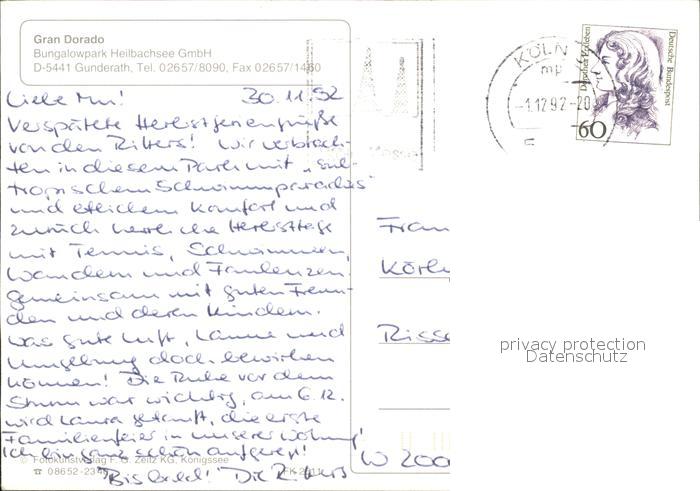 Gran Dorado
Bungalowpark Heilbachsee GmbH
D-5441 Gunderath, Tel. 02657/8090, Fax 02657/1460
30.11.92
Liebe
Verspätete Herbstferiengrüße
von den Ritters! Wir verbrach-
ten in diesem Park mit „sub-
tropischem Schwimmparadies"
und etlichem Komfort
herrliche Herbsttage
mit Tennis, Schwimmen,
Wandern und Faulenzen
gemeinsam mit guten Freun-
den und deren Kindern.
Was gute Luft, Laune und
Umgebung doch bewirken
können! Die Ruhe vor dem
Sturm war wichtig, am 6.12.
wird Laura getauft, die erste
Familienfeier in unserer Wohnung!
Ich bin ganz schön aufgeregt!
Bis bald! Die Ritters
© Fotokunstverlag F. G. Zeitz KG, Königssee
☎ 08652-23
KÖLN
mp
-1.12.92-20
Deutsche Bundespost
60
Frau
Körle
Risse
W 200
privacy protection
Datenschutz